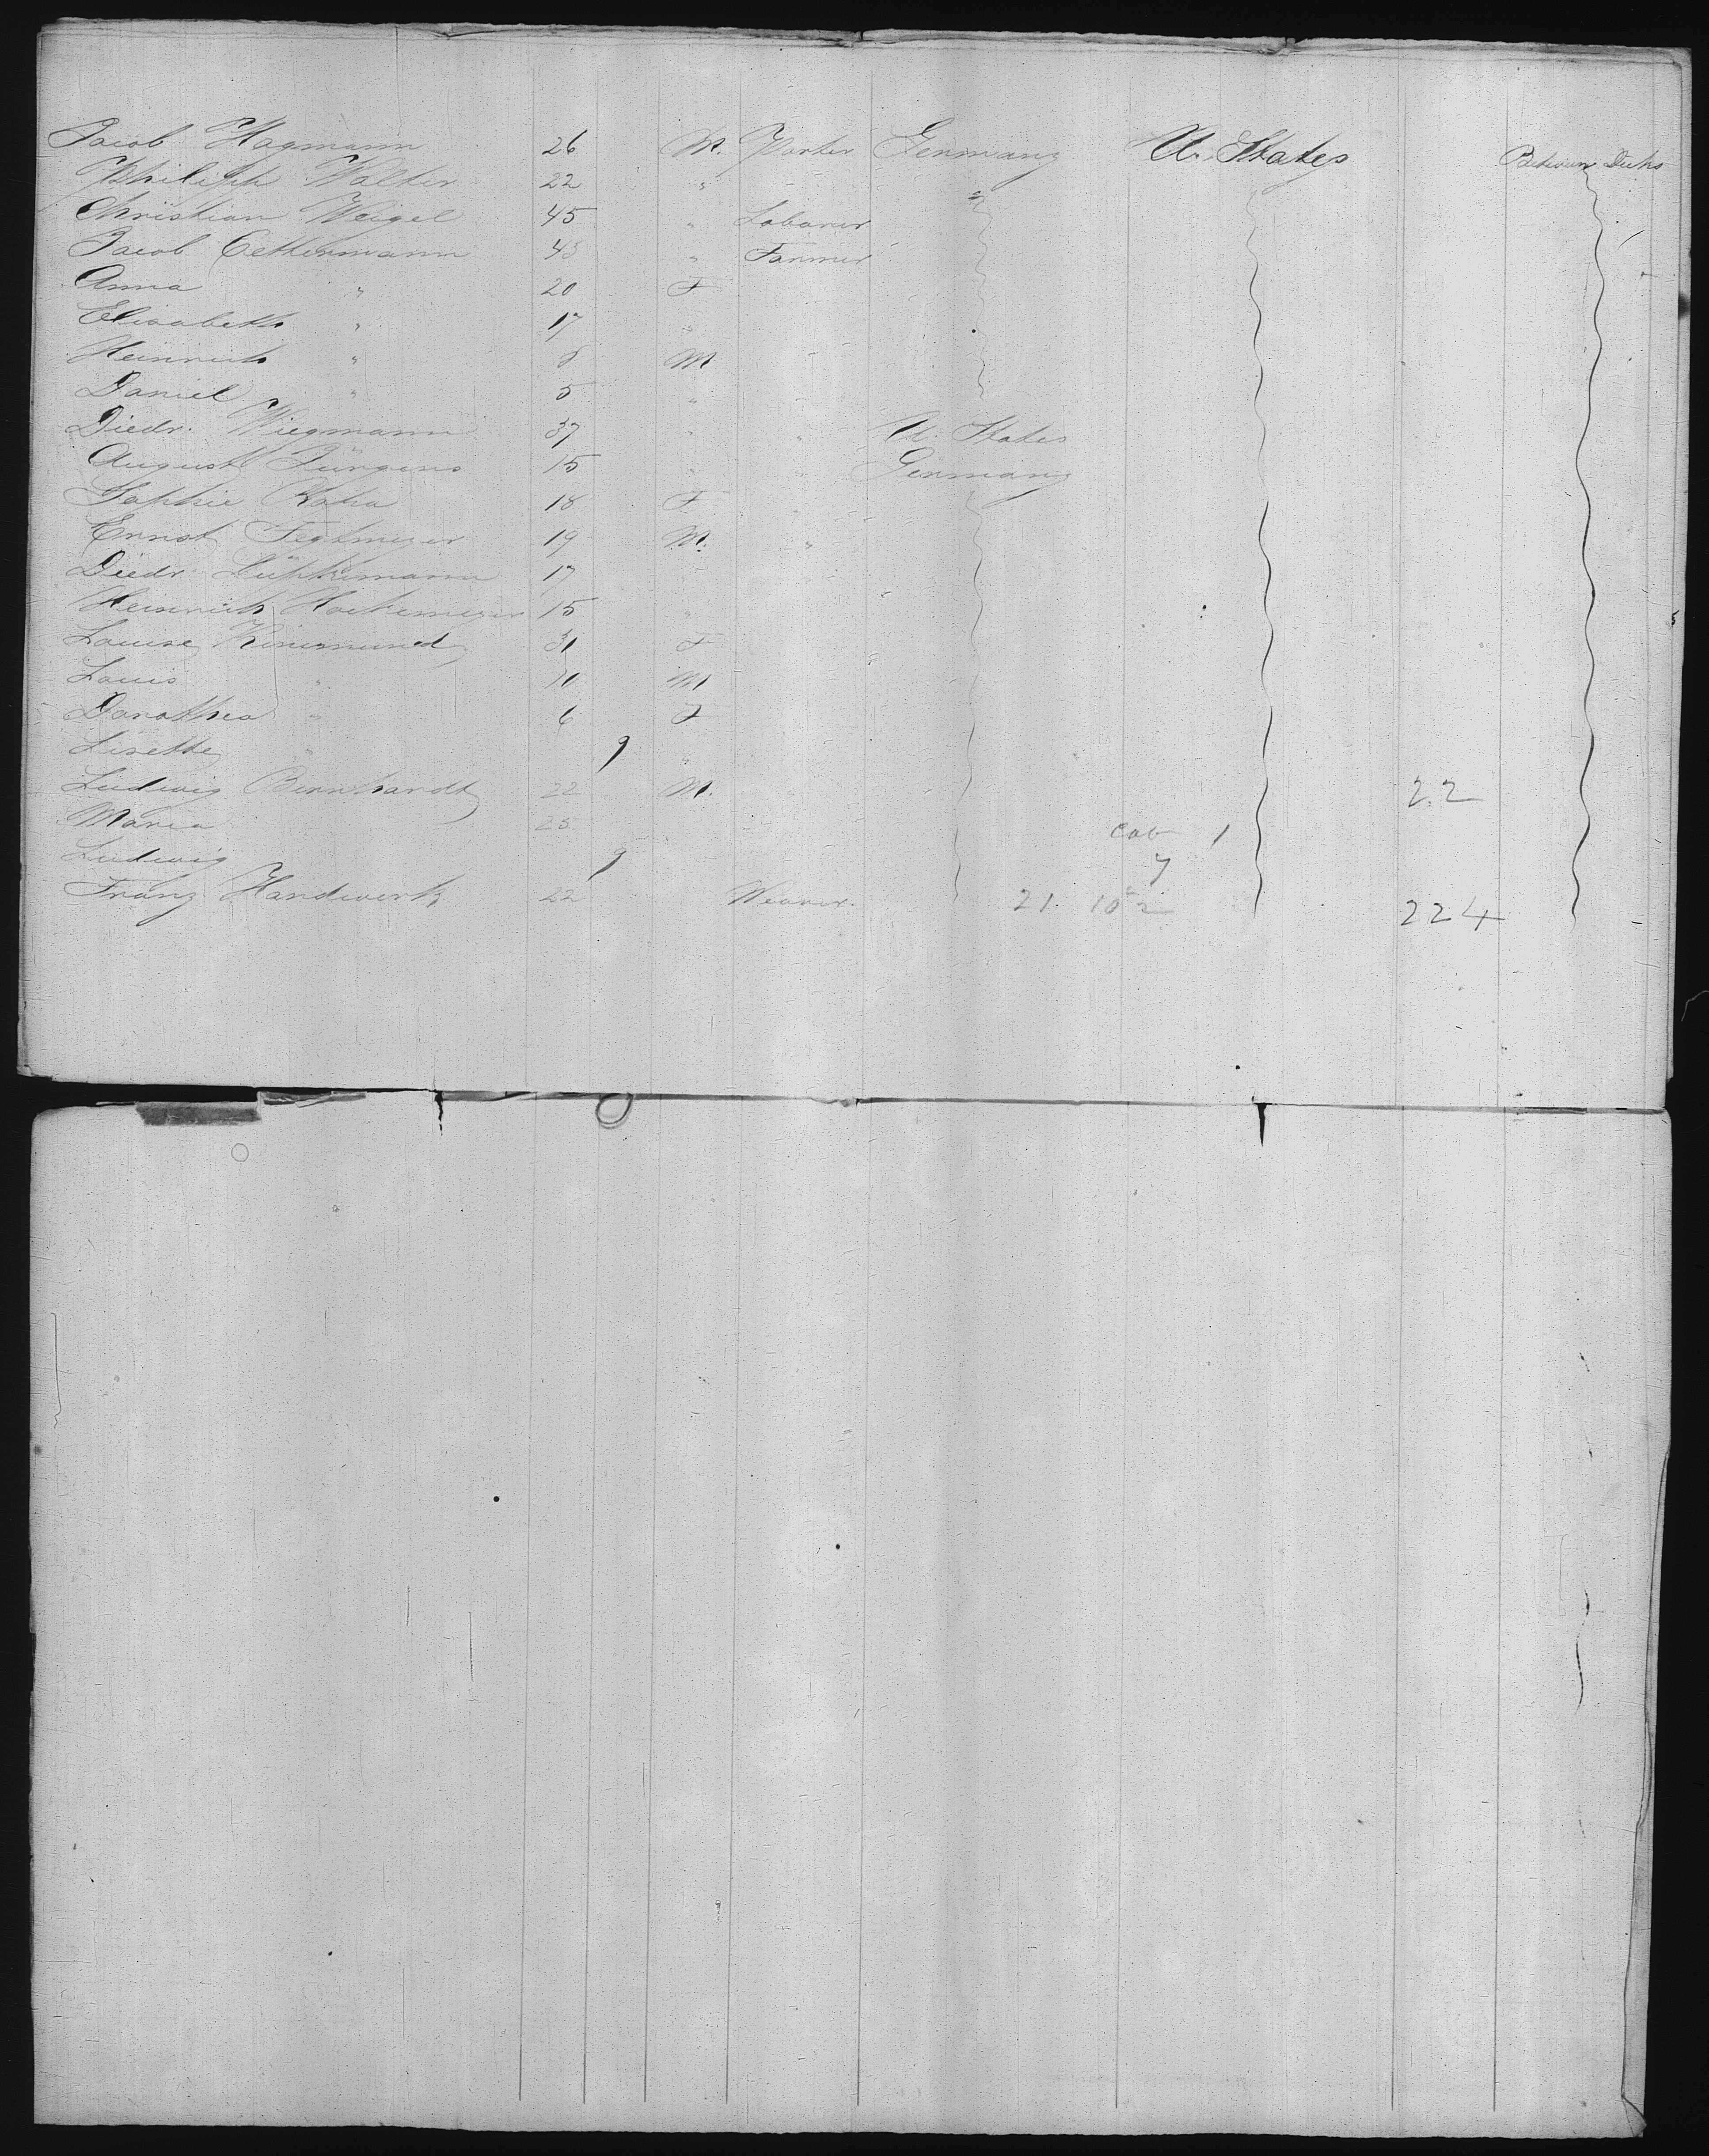 Jacob Hagmann 26 M. Porter Germany U. States Between Decks
Philipp Walter 22 "
Christian Weigel 45 " Labourer
Jacob Oettermann 43 " Farmer
Anna " 20 F
Elisabeth " 17 "
Heinrich " 8 M
Daniel " 5 "
Diedr. Wiegmann 37 " " U. States
August Jürgens 15 " " Germany
Sophie 18 F
Ernst Tegtmeyer 19 M. "
Diedr. Lüpkemann 17 "
Heinrich Hockemeyer 15 "
Louise 31 F
Louis " 11 M
Dorothea " 6 F
Lisette " 9 "
Ludwig Bernhardt 22 M. " 22
Maria 23 Cab 1
Ludwig 9 7
Franz Handwerk 22 Weaver. 21. 224